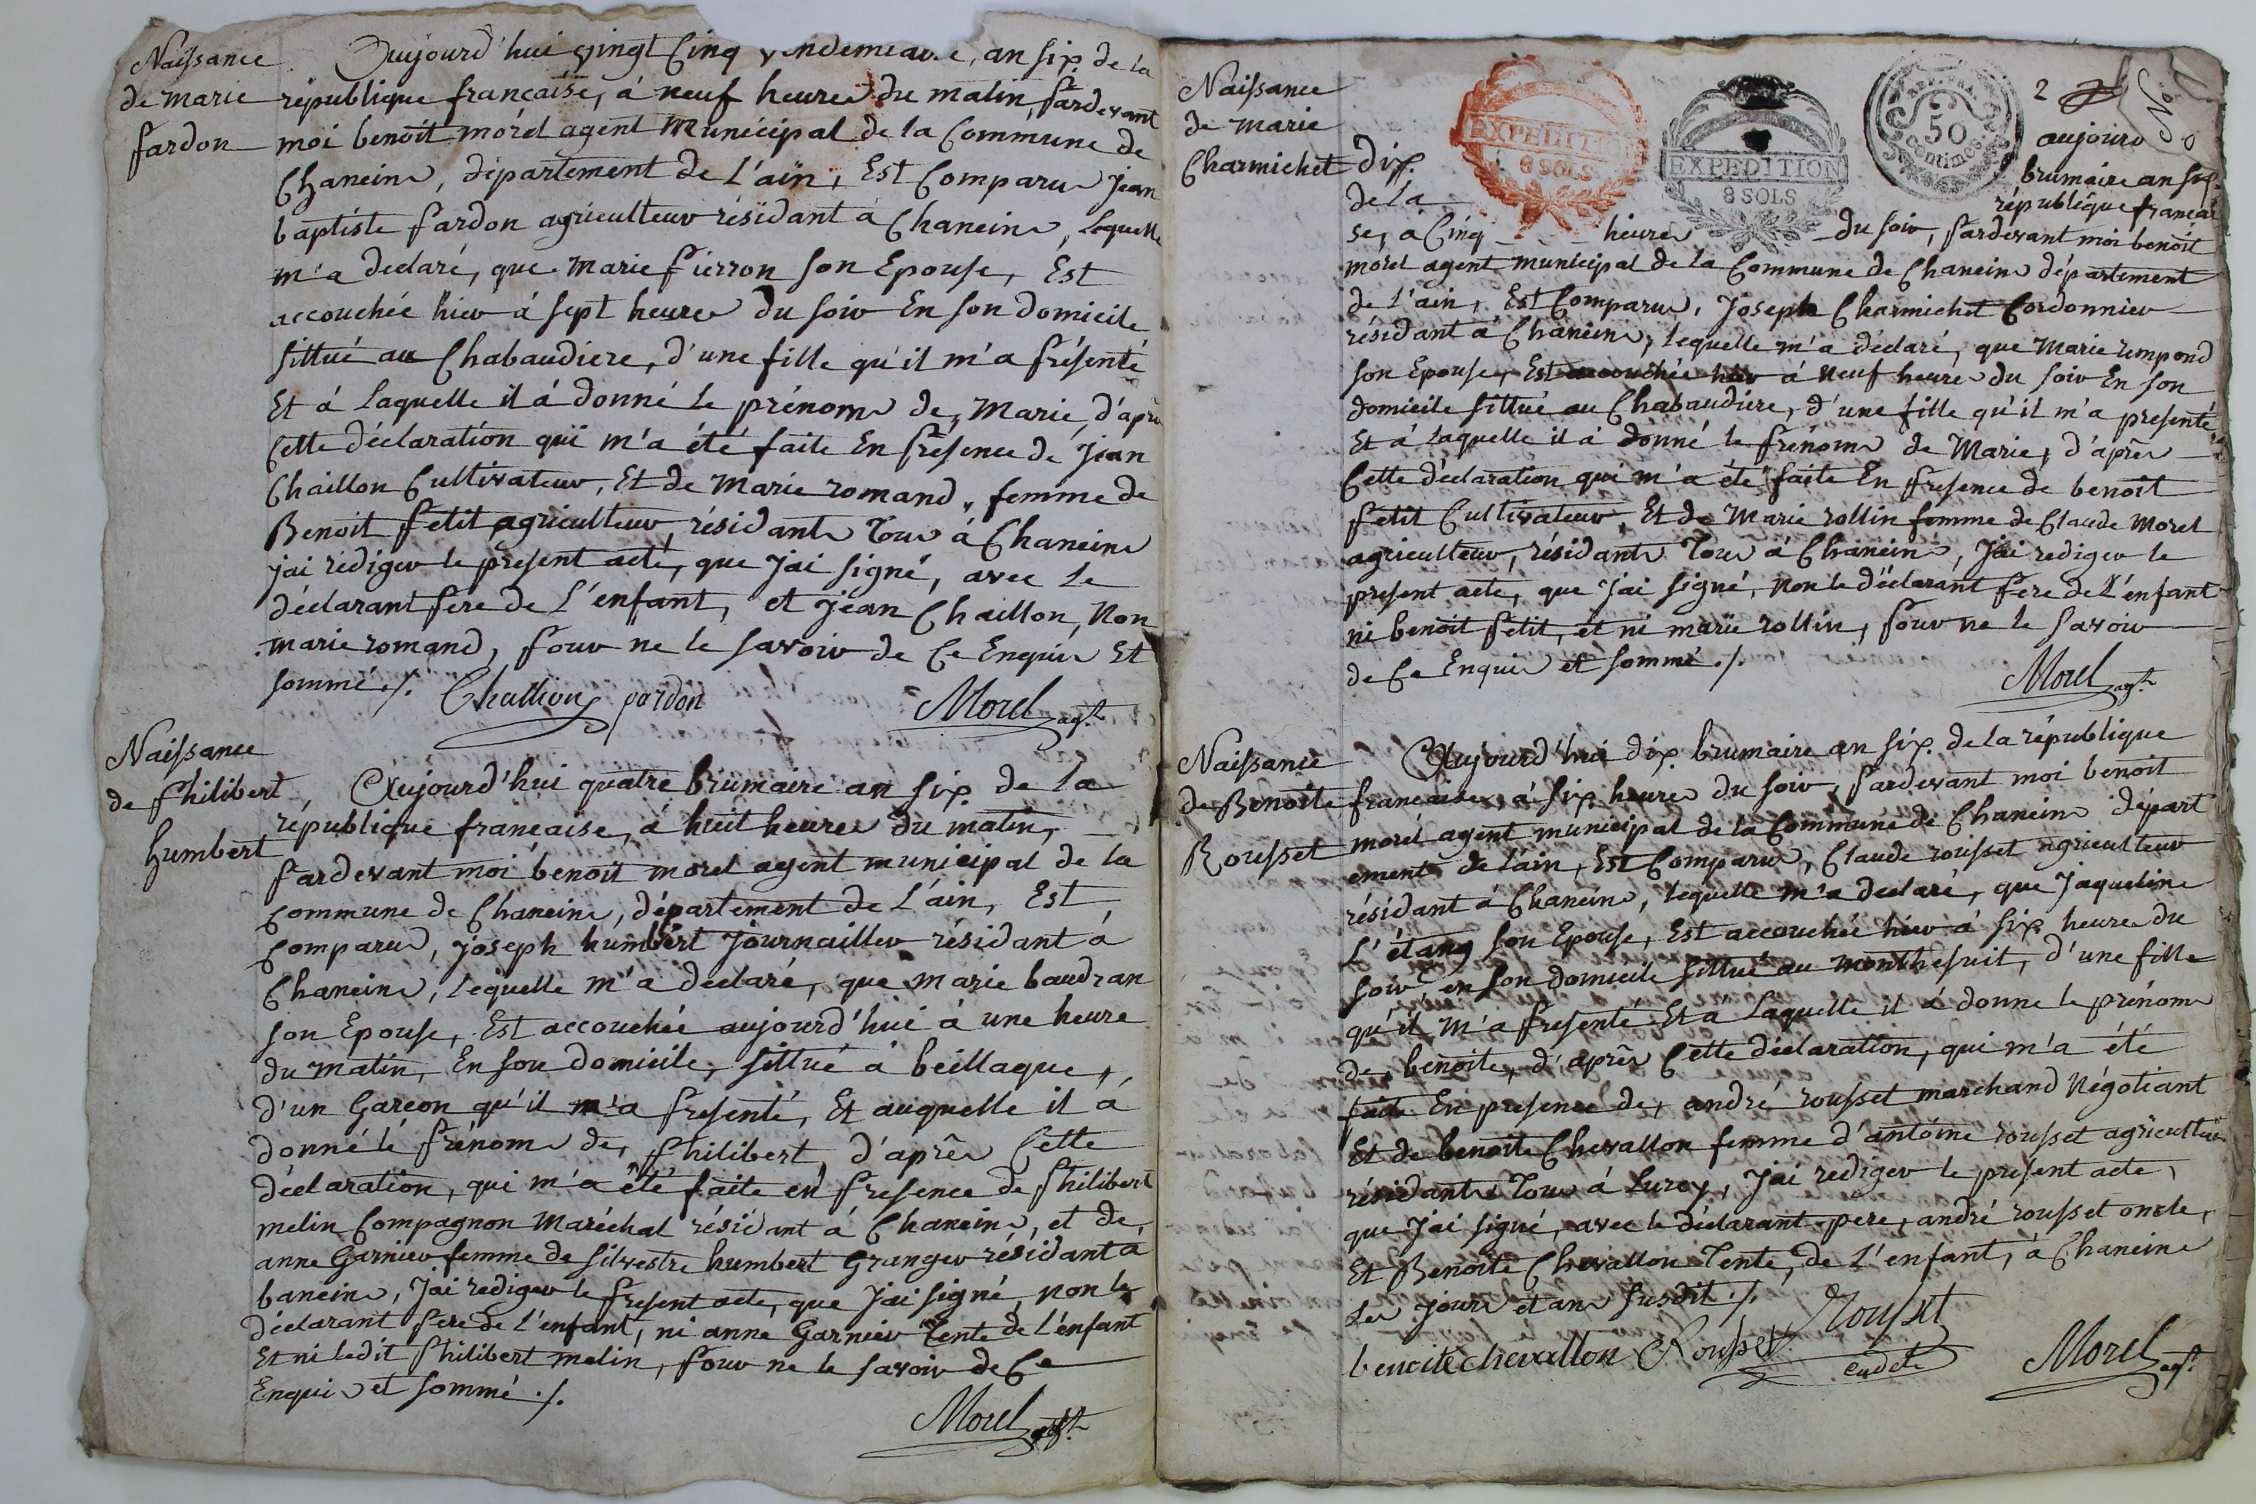 Naissance
de marie
fardon
Aujourd'hui vingt Cinq vendemeaire, an six de la
république francaise, á neuf heures du matin, pardevant
moi benoit morel agent municipal de la Commune de
Chaneins, département de L'ain, Est Comparu Jean
baptiste fardon agriculteur résidant á Chaneins, Lequelle
m'a declaré, que marie pierron son Epouse, Est
accouchée hier á sept heures du soir En son domicile
sittué au Chabaudiere, d'une fille qu'il m'a présenté
Et á Laquelle il á donné le prénoms de, Marie, d'après
Cette déclaration qui m'a été faite En présence de Jean
Chaillon Cultivateur, Et de Marie romand, femme de
Benoit petit agriculteur, résidants Tous á Chaneins
jai rediger le présent acte, que jai signé, avec Le
déclarant pere de L'enfant, et Jean Chaillon, Non
marie romand, pour ne le savoir de Ce Enquis Et
sommé ./.
Chaillion pardon Morel agt
Naissance
de philibert
humbert
Aujourd'hui quatre brumaire an six de la
république francaise, á huit heures du matin,
pardevant moi benoit morel agent municipal de la
Commune de Chaneins, département de L'ain, Est
Comparus, joseph humbert Journaillier résidant á
Chaneins, Léquelle m'a declaré, que marie baudran
son Epouse, Est accouchée aujourd'hui á une heure
du matin, En son domicile, sittué á beillaque,
d'un Garcon qu'il m'a presenté, Et auquelle il á
donné lé prénoms de, philibert, d'après Cette
déclaration, qui m'a été faite en presence de philibert
melin Compagnon Maréchal résidant á Chaneins, et de,
anne Garnier femme de silvestre humbert Granger résidant á
baneins, Jai rediger le present acte, que Jai signé, non le
déclarant pere de L'enfant, ni anne Garnier Tente de L'enfant
Et ni ledit philibert melin, pour ne le savoir de Ce
Enquis et sommé ./.
Morel agt
Naissance
de marie
Charmichet
EXPEDITION
8 SOLS
EXPEDITION
8 SOLS
REP. FRA.
50
centimes
2
No
aujourd
dix
brumaire an six
de la
république francai
se, a Cinq heures du soir, pardevant moi benoit
morel agent municipal de la Commune de Chaneins département
de L'ain, Est Comparus, Joseph Charmichet Cordonnier
résidant á Chaneins, Lequelle m'a déclaré, que Marie rempond
son Epouse, Est accouchée hier á neuf heures du soir En son
domicile sittué au Chabaudiere, d'une fille qu'il m'a presenté
Et á Laquelle il á donné le prénoms de Marie, d'après
Cette déclaration qui m'a été faite En presence de benoit
petit Cultivateur, Et de Marie rollin femme de Claude Morel
agriculteur, résidants Tous á Chaneins, Jai rediger le
present acte, que Jai signé, Non le déclarant pere de L'enfant
ni benoit petit, ét ni marie rollin, pour ne le savoir
de Ce Enquis et sommé ./.
Morel agt
Naissance
de Benoite
Rousset
Aujourd'hui dix brumaire an six de la république
francaise, á six heures du soir, pardevant moi benoit
morel agent municipal de la Commune de Chaneins départ
ement de L'ain, Est Comparus, Claude rousset agriculteur
résidant á Chaneins, Lequelle m'a declaré, que Jaqueline
L'étang son Epouse, Est accouchée hier á six heures du
soir en son domicile sittué au monthepuit, d'une fille
qu'il M'a presenté Et á Laquelle il á donné le prénoms
de, benoite, d'après Cette déclaration, qui m'a été
faite En presence de, andré rousset marchand Négotiant
Et de benoite Chevallon femme d'antoine rousset agriculteur
résidants Tous á Lurcy, Jai rediger le present acte,
que Jai signé, avec le déclarant pere, andré rousset oncle,
Et Benoite Chevallon Tente, de L'enfant, á Chaneins
Les Jours ét ans susdit ./.
benoite chevallon Rousset Rousset cadet Morel agt